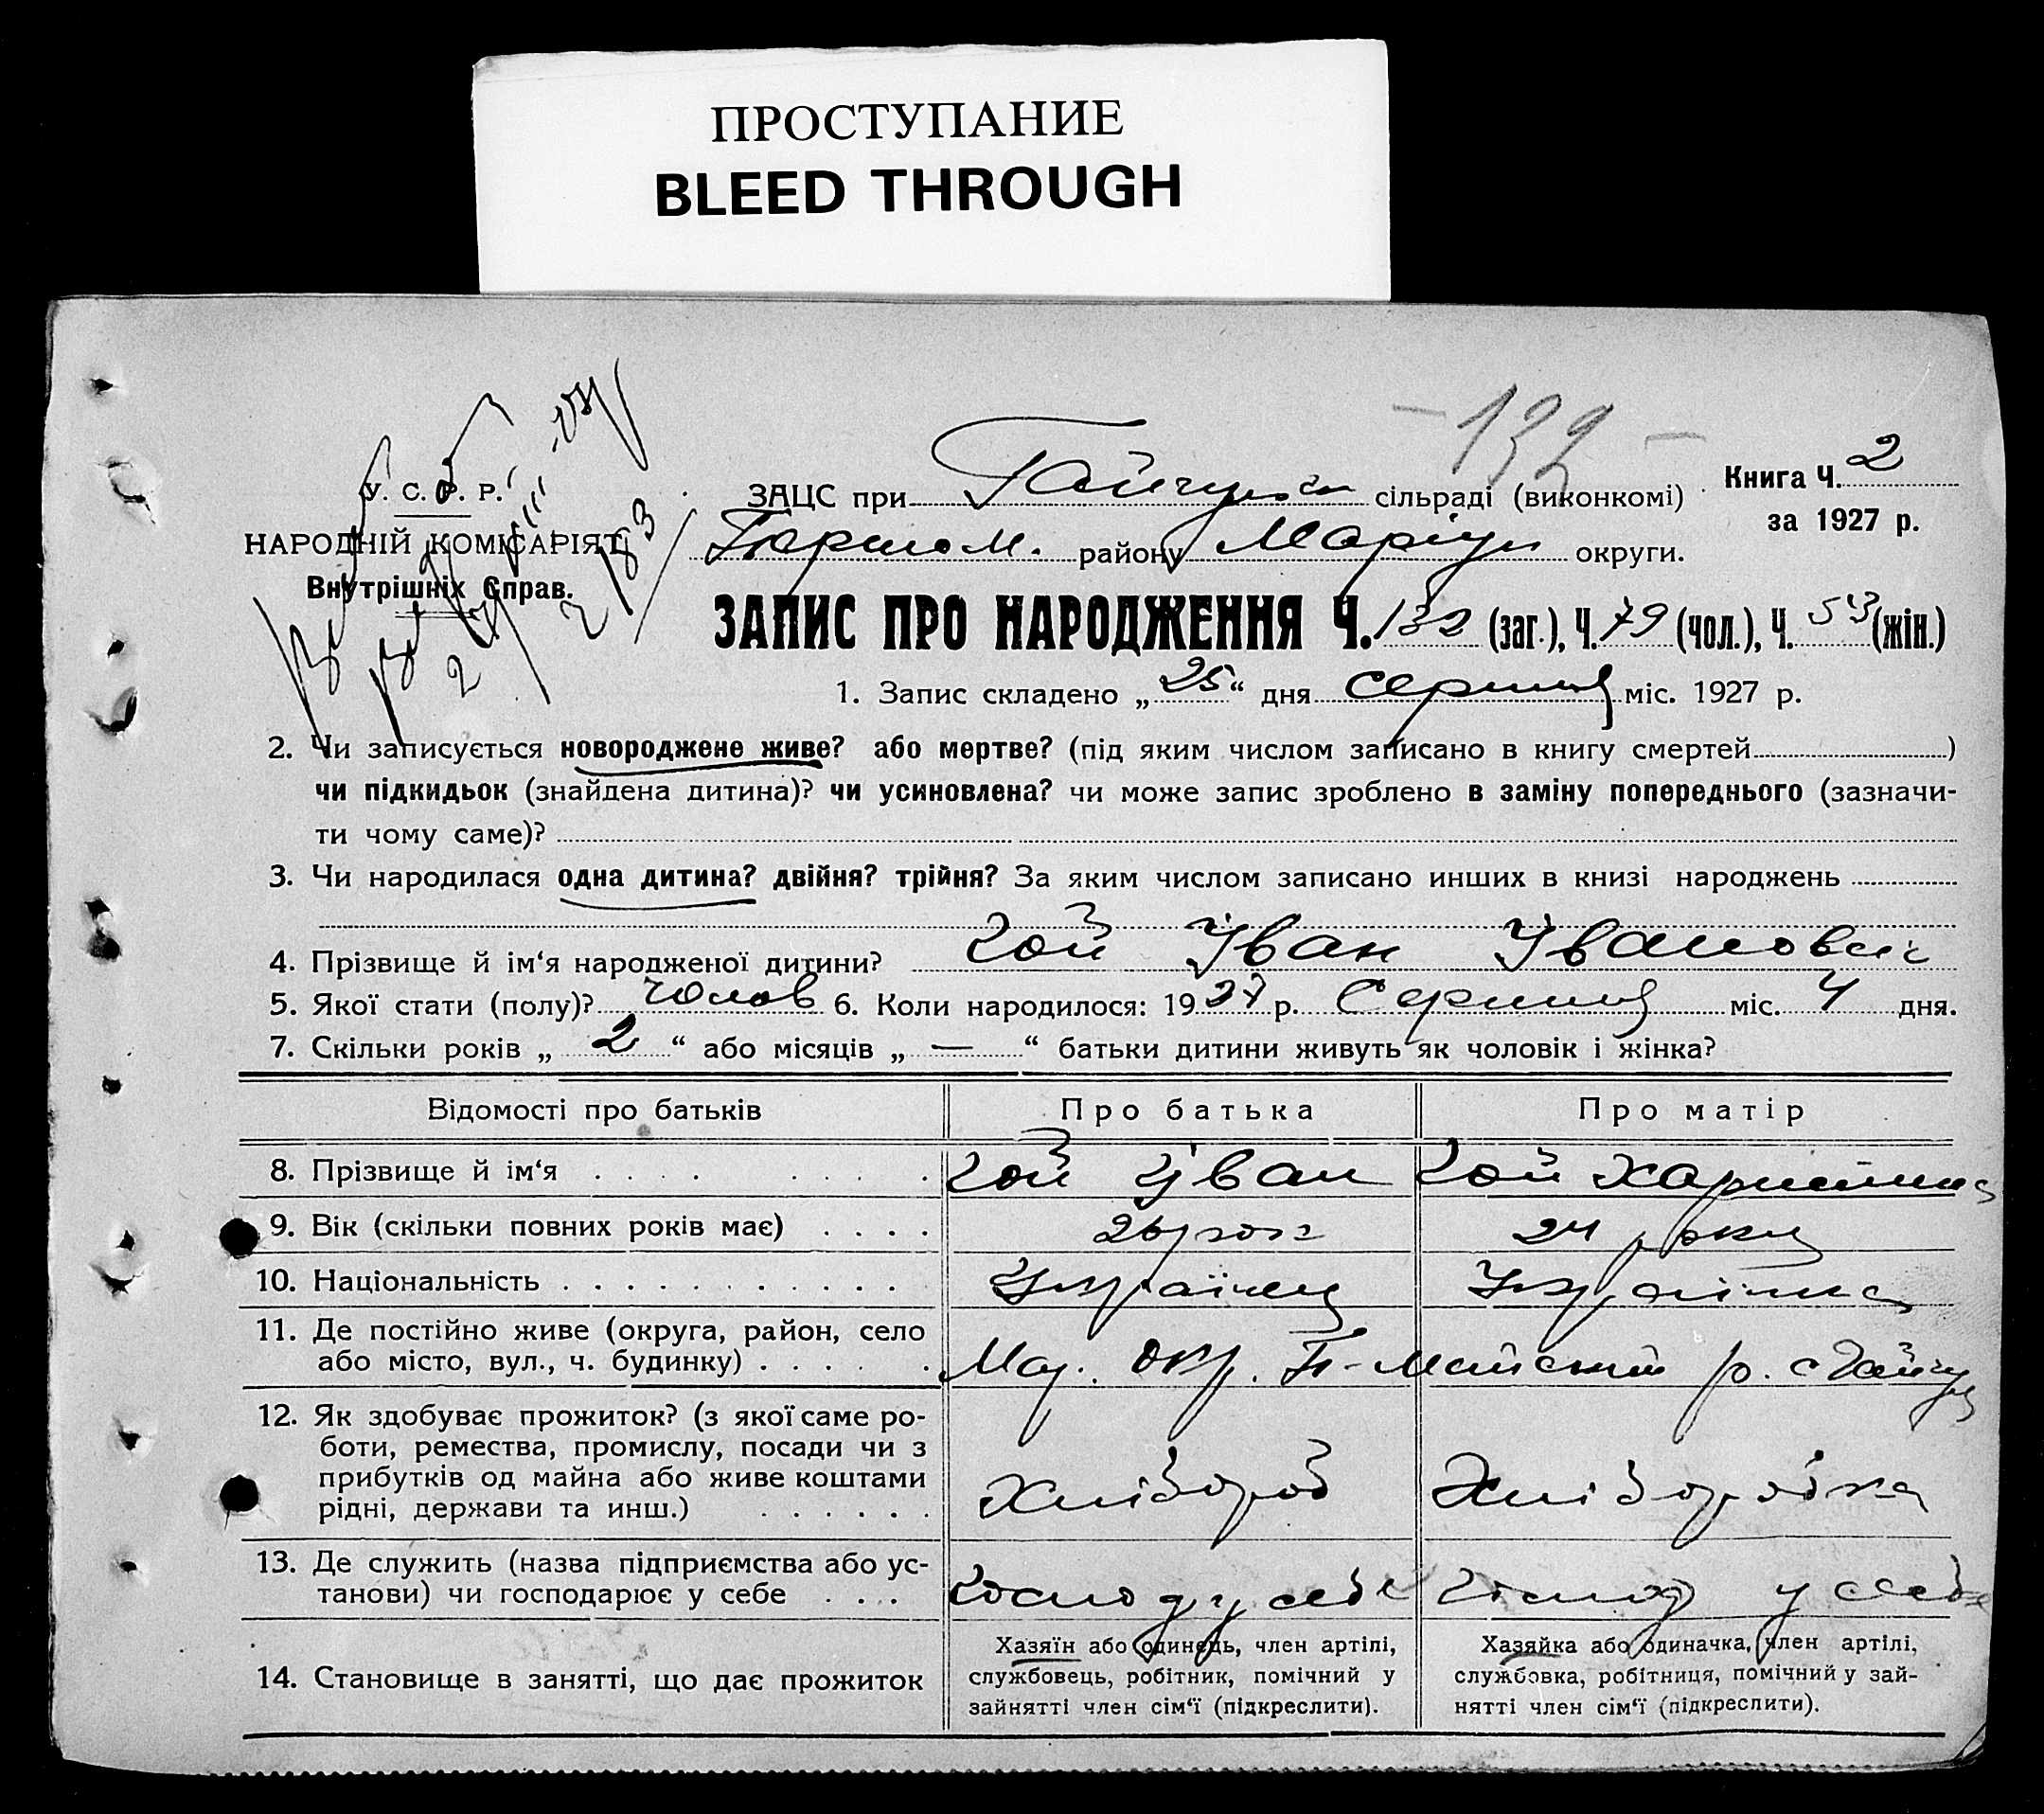 ПРОСТУПАНИЕ
BLEED THROUGH
- 132 -
У. С. Р. Р.
НАРОДНІЙ КОМІСАРІЯТ
Внутрішніх Справ.
Книга Ч. 2
за 1927 р.
ЗАЦС при сільраді (виконкомі)
району Маріуп округи.
ЗАПИС ПРО НАРОДЖЕННЯ Ч. 132 (заг.), Ч. 79 (чол.), Ч. 53 (жін.)
1. Запис складено „ 25 “ дня серпня міс. 1927 р.
2. Чи записується новороджене живе? або мертве? (під яким числом записано в книгу смертей )
чи підкидьок (знайдена дитина)? чи усиновлена? чи може запис зроблено в заміну попереднього (зазначи-
ти чому саме)?
3. Чи народилася одна дитина? двійня? трійня? За яким числом записано инших в книзі народжень
4. Прізвище й ім‘я народженої дитини? Гой Іван Іванович
5. Якої стати (полу)? чолов 6. Коли народилося: 1927 р. Серпня міс. 4 дня.
7. Скільки років „ 2 “ або місяців „ — “ батьки дитини живуть як чоловік і жінка?
Відомості про батьків Про батька Про матір
8. Прізвище й ім‘я . . . . . . . . Гой Іван Гой Харитина
9. Вік (скільки повних років має) . . . . 26 рок 24 роки
10. Національність . . . . . . . . . . . . Українец Українка
11. Де постійно живе (округа, район, село
або місто, вул., ч. будинку) . . . . . . Мар. окр. П-Майський р. с Гайчур
12. Як здобуває прожиток? (з якої саме ро-
боти, ремества, промислу, посади чи з
прибутків од майна або живе коштами
рідні, держави та инш.) . . . . . . Хлібороб Хліборобка
13. Де служить (назва підприємства або ус-
танови) чи господарює у себе . . . Господ у себе Господ у себе
14. Становище в занятті, що дає прожиток
Хазяїн або одинець, член артілі,
службовець, робітник, помічний у
зайнятті член сім‘ї (підкреслити).
Хазяйка або одиначка, член артілі,
службовка, робітниця, помічний у зай-
нятті член сім‘ї (підкреслити).